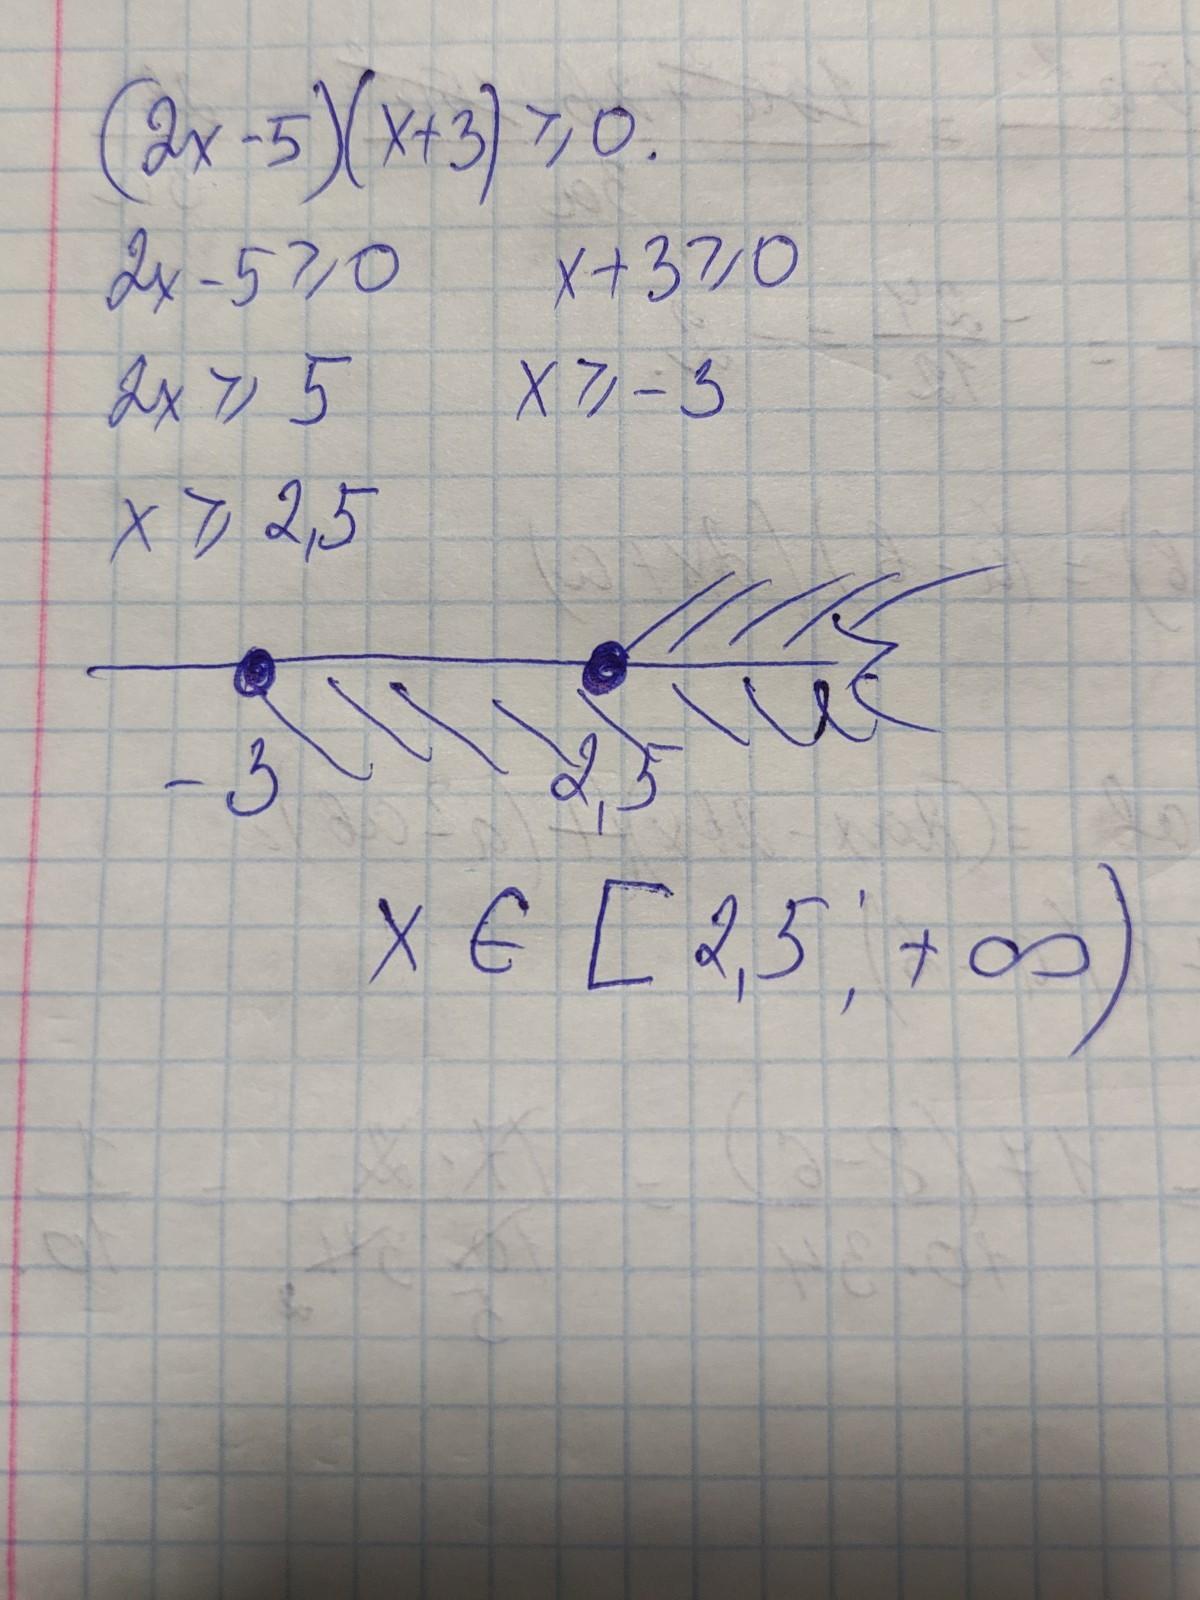 (2x-5)(x+3)⩾0.
2x-5⩾0 x+3⩾0
2x⩾5 x⩾-3
x⩾2,5
-3 2,5
x∈[2,5;+∞)